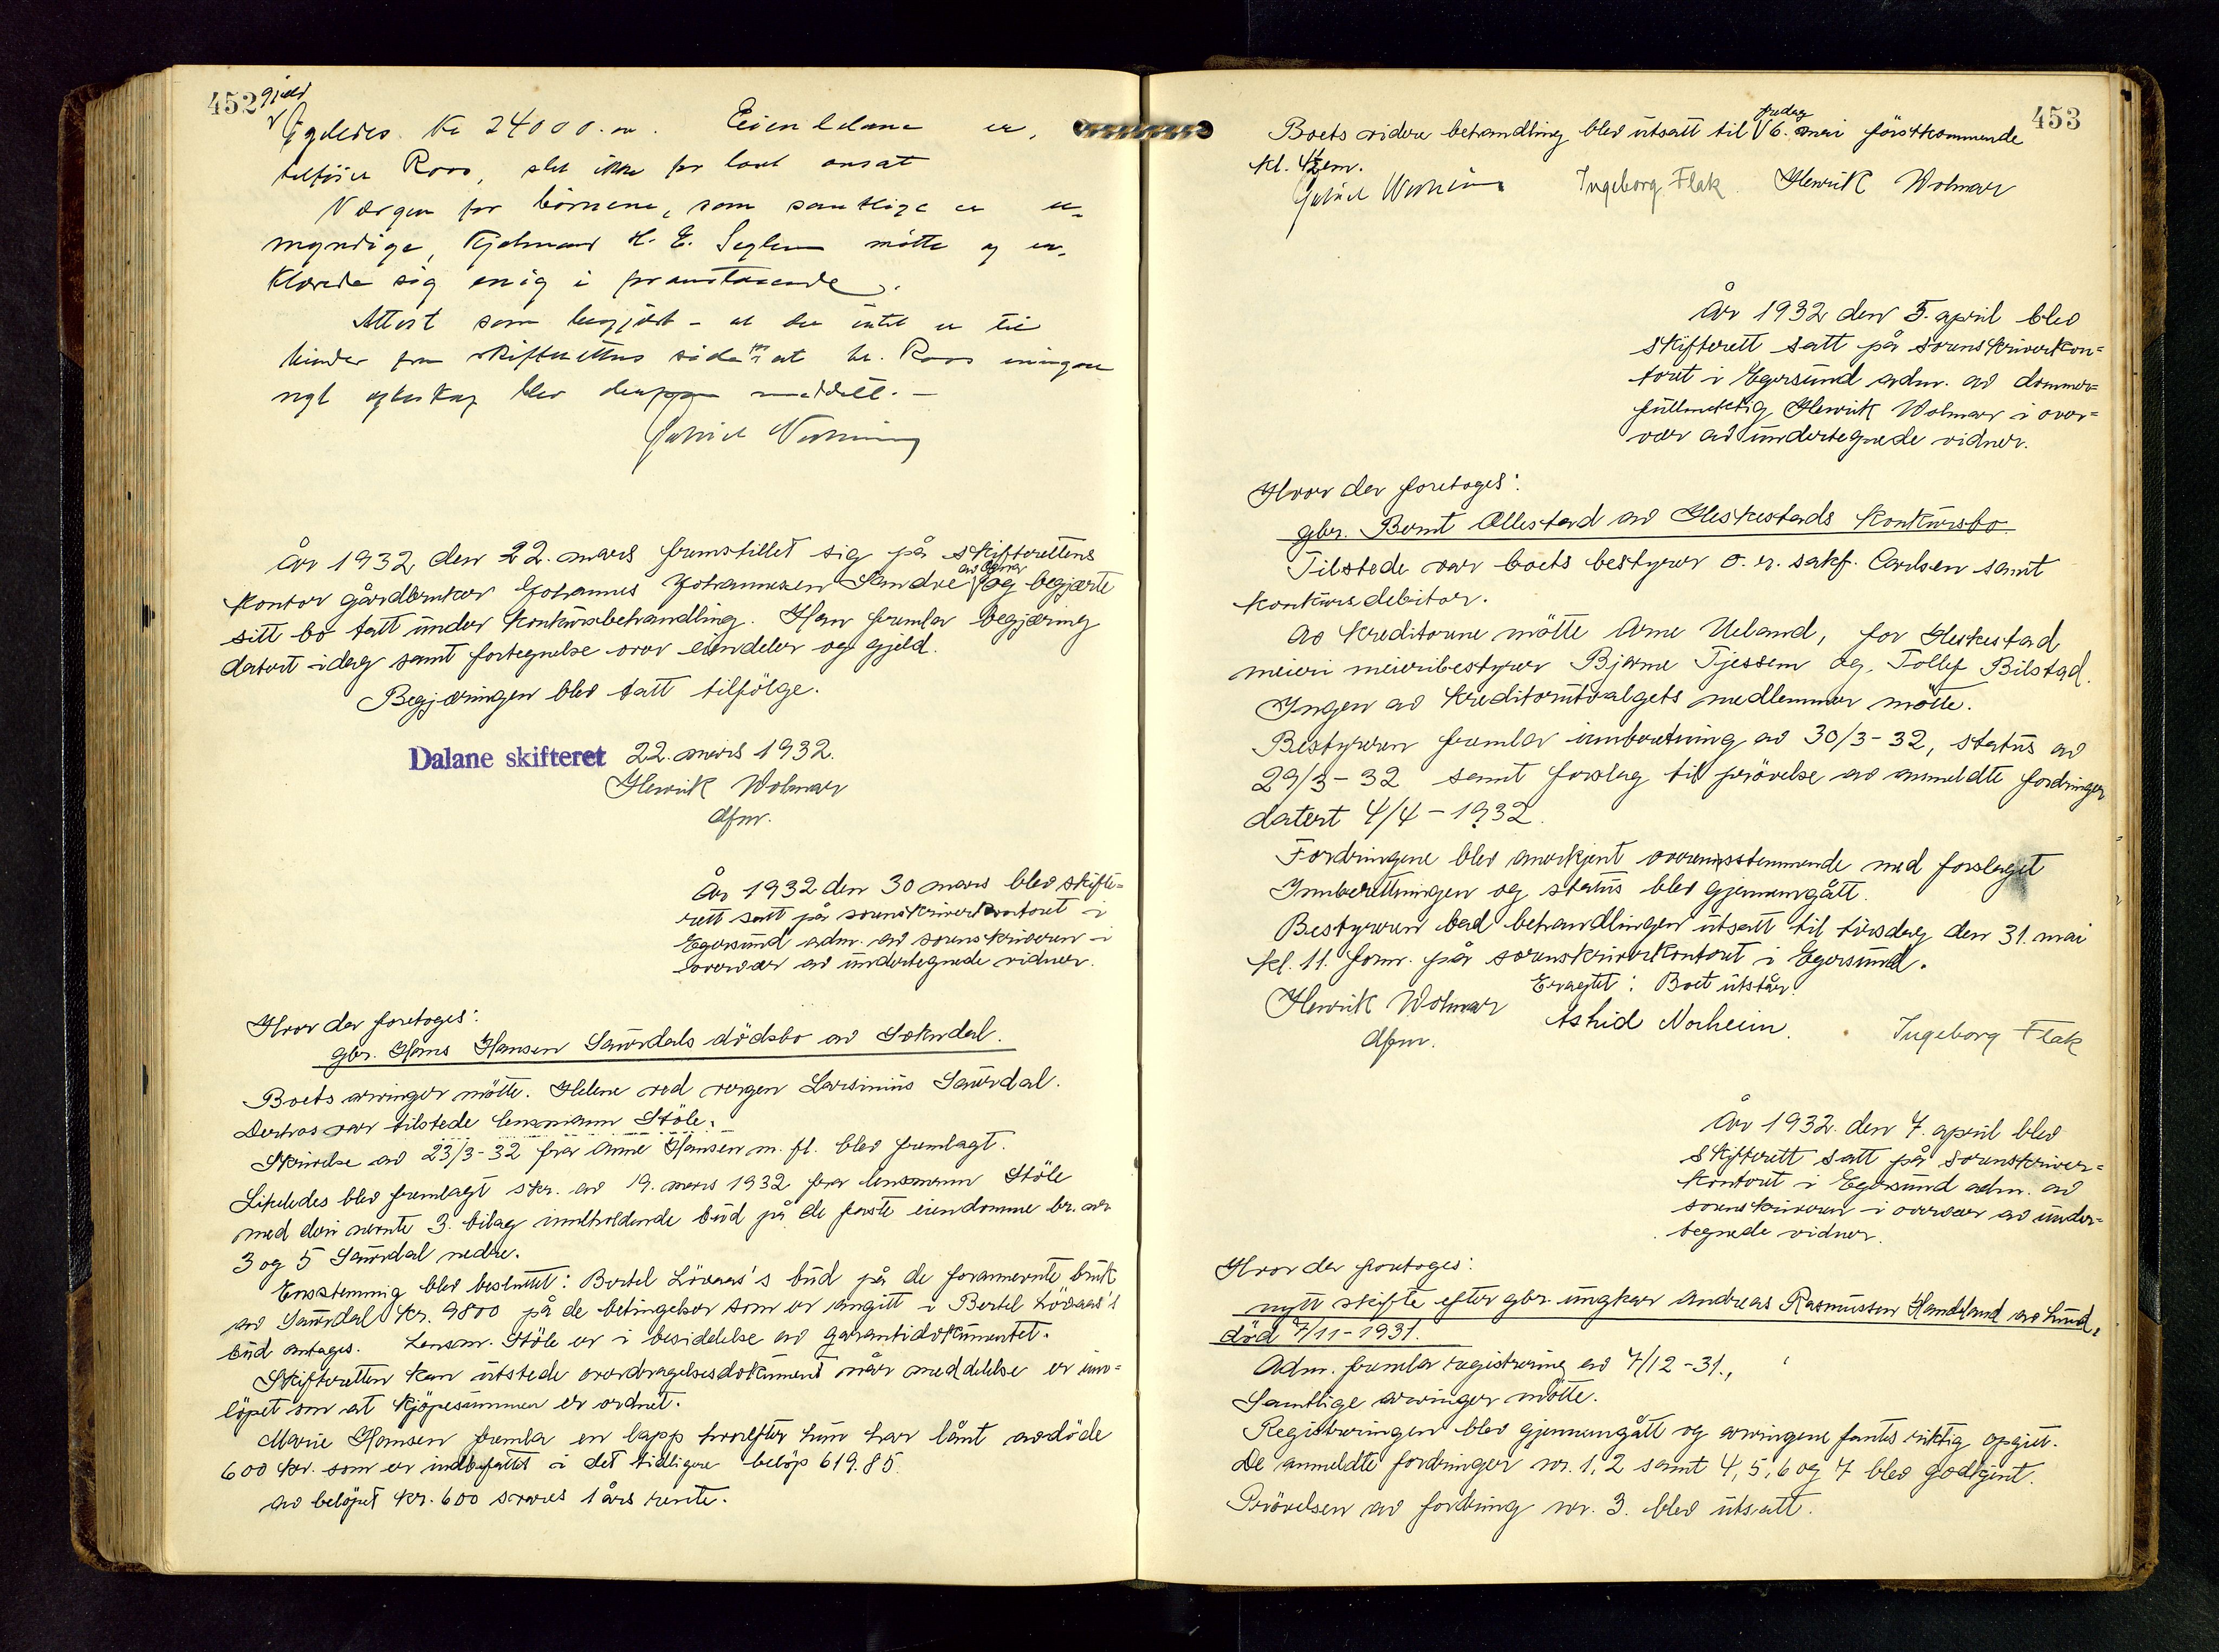 452
gjeld
ligeledes Kr 24000.oo. Eiendelene er,
tilföier Roos, slet ikke for lavt ansat
Værgen for börnene, som samtlige er u-
myndige, H. E. Seglem mötte og er-
klærede sig enig i foranstaaende.
Attest som begjært - at der intet er til
hinder fra skifterettens side at hr. Roos
blev derpaa meddelt. -
År 1932 den 22. mars fremstillet sig på skifterettens
kontor gårdbruker Johannes Johannesen Sandve og begjærte
sitt bo tatt under konkursbehandling. Han fremla begjæring
datert idag samt fortegnelse over eiendeler og gjeld.
Begjæringen blev tatt tilfölge.
Dalane skifteret 22. mars 1932.
Henrik Wolmar
dfm.
År 1932 den 30 mars blev skifte-
rett satt på sorenskriverkontoret i
Egersund adm. av sorenskriveren i
overvær av undertegnede vidner.
Hvor der foretoges:
gbr. Hans Hansen Saurdals dödsbo av Sokndal.
Boets arvinger mötte. Helene ved vergen Larsinius Saurdal.
Derhos var tilstede lensmann Stöle.
Skrivelse av 23/3-32 fra Anne Hansen m. fl. blev fremlagt.
Likeledes blev fremlagt skr. av 19. mars 1932 fra lensmann Stöle
med deri nevnte 3. bilag inneholdende bud på de faste eiendomme br. nr
3 og 5 Saurdal nedre.
Enstemmig blev besluttet: Bertel Lövaas's bud på de forannevnte bruk
av Saurdal kr. 9800 på de betingelser som er angitt i Bertel Lövaas's
bud antages. Lensm. Stöle er i besiddelse av garantidokumentet.
Skifteretten kan utstede overdragelsesdokument når meddelelse er inn-
löpet om at kjöpesummen er ordnet.
Marie Hansen fremla en lapp hvorefter hun har lånt avdöde
600 kr. som er indbefattet i det tidligere belöp 619.85.
Av belöpet kr. 600 svares 1 års rente.
453
Boets videre behandling blev utsatt til fredag 6. mai förstkommende
kl. 4½ em.
Ingeborg Flak Henrik Wolmar
År 1932 den 5. april blev
skifterett satt på sorenskriverkon-
toret i Egersund adm. av dommer-
fullmektig Henrik Wolmar i over-
vær av undertegnede vidner.
Hvor der foretoges:
gbr. Bernt Ollestad av Heskestads konkursbo
Tilstede var boets bestyrer o. r. sakf. Carlsen samt
konkursdebitor.
Av kreditorene mötte Arne Ueland, for Heskestad
meieri meieribestyrer Bjarne Tjessem og Tollef Bilstad.
Ingen av kreditorutvalgets medlemmer mötte.
Bestyreren fremla innberetning av 30/3-32, status av
29/3-32 samt forslag til prövelse av anmeldte fordringer
datert 4/4-1932.
Fordringene blev anerkjent overensstemmende med forslaget
Innberetningen og status blev gjennemgått.
Bestyreren bad behandlingen utsatt til tirsdag den 31. mai
kl. 11. form. på sorenskriverkontoret i Egersund.
Eragtet: Boet utstår.
Henrik Wolmar Astrid Norheim. Ingeborg Flak
dfm.
År 1932. den 7. april blev
skifterett satt på sorenskriver-
kontoret i Egersund adm. av
sorenskriveren i overvær av under-
tegnede vidner.
Hvor der foretoges:
nytt skifte efter gbr. ungkar Andreas Rasmussen Handeland av Lund,
död 7/11-1931.
Adm. fremla registrering av 7/12-31.,
Samtlige arvinger mötte.
Registreringen blev gjennemgått og arvingene fantes riktig opgitt.
De anmeldte fordringer nr. 1, 2 samt 4, 5, 6 og 7 blev godkjent.
Prövelsen av fordring nr. 3. blev utsatt.